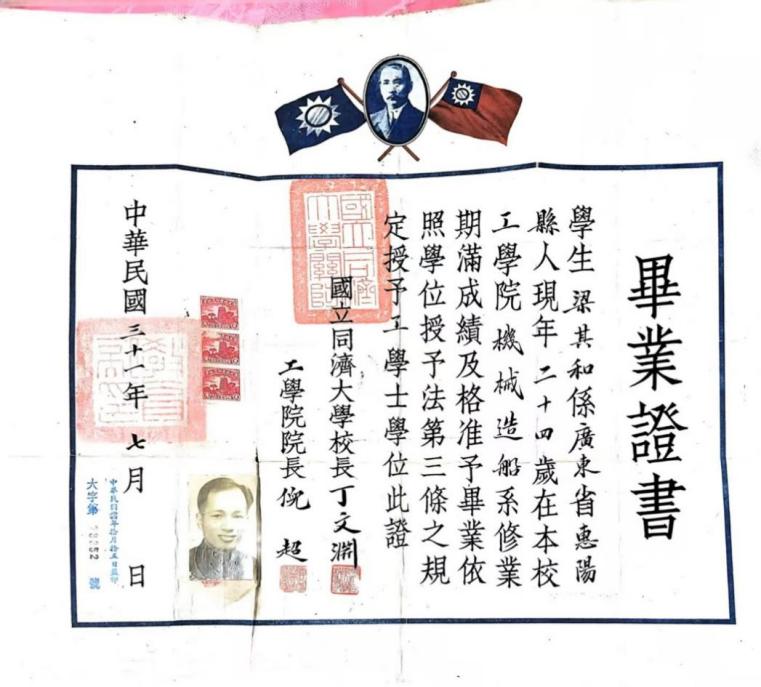 畢業證書
學生梁其和係廣東省惠陽
縣人現年二十四歲在本校
工學院機械造船系修業
期滿成績及格准予畢業依
照學位授予法第三條之規
定授予工學士學位此證
國立同濟大學校長丁文淵
工學院院長倪超
中華民國三十一年七月日
大字第
號